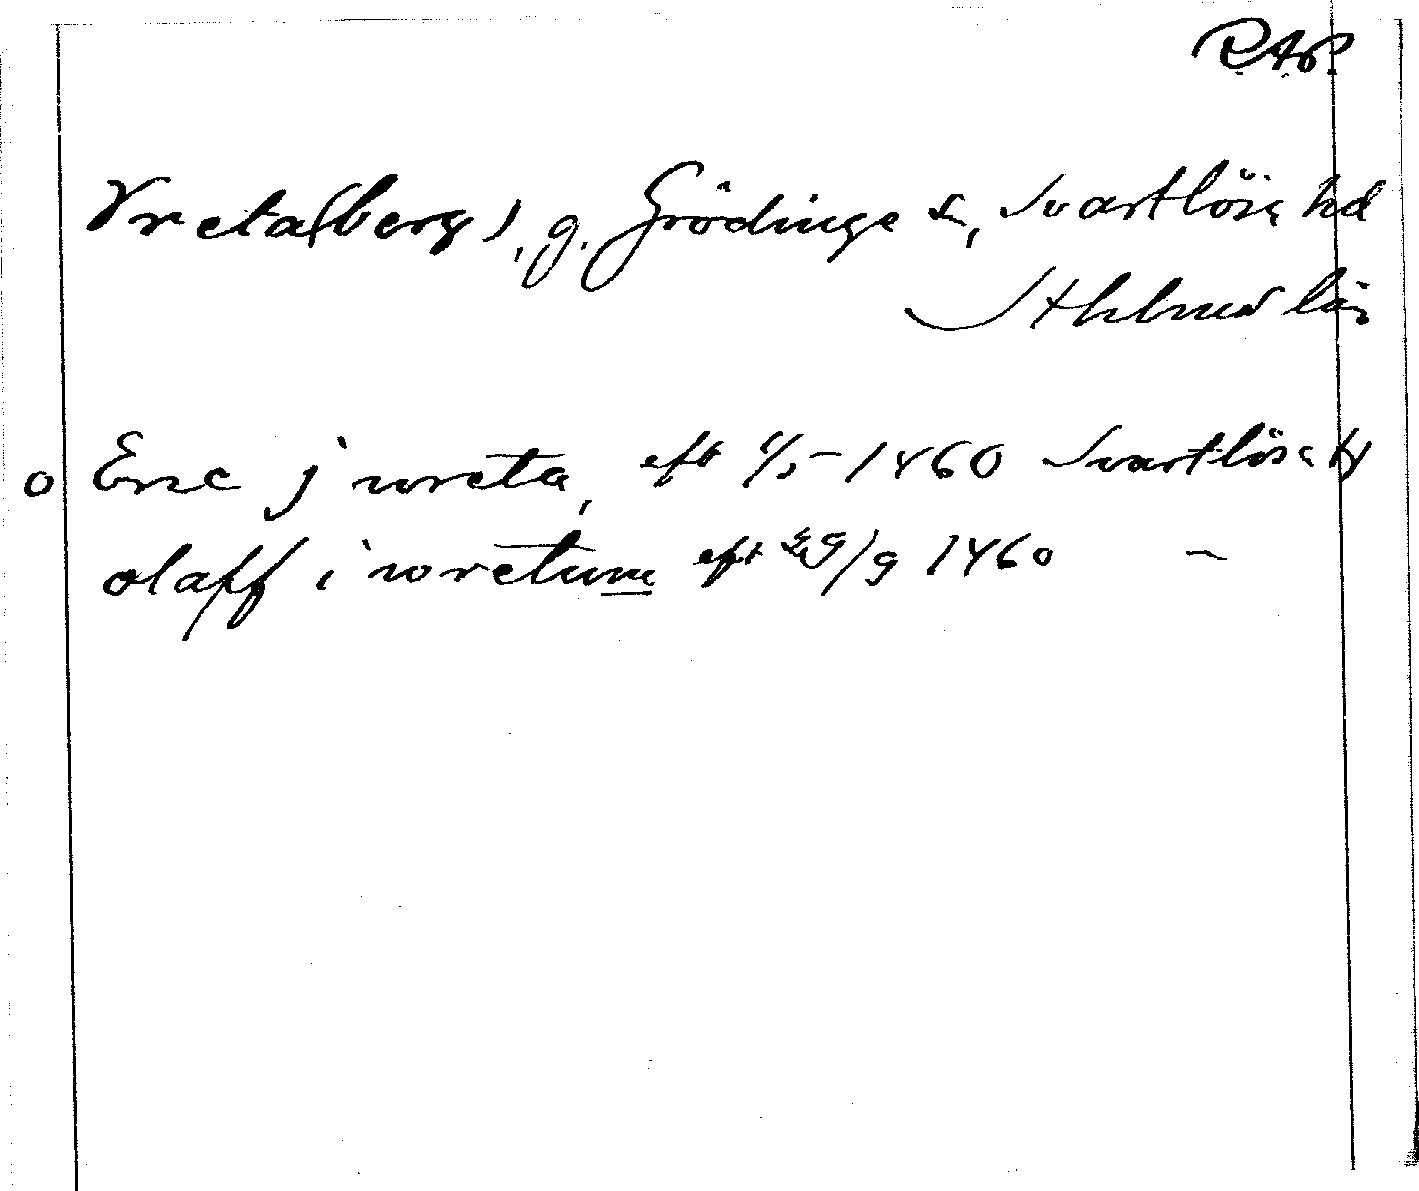 RAP.
Vreta(berg), g. Grödinge sn, Svartlösa hd
Sthlms län
o Eric j wreta, eft 1/5 1460 Svartlösa h
olaff i wretum eft 29/9 1460 –